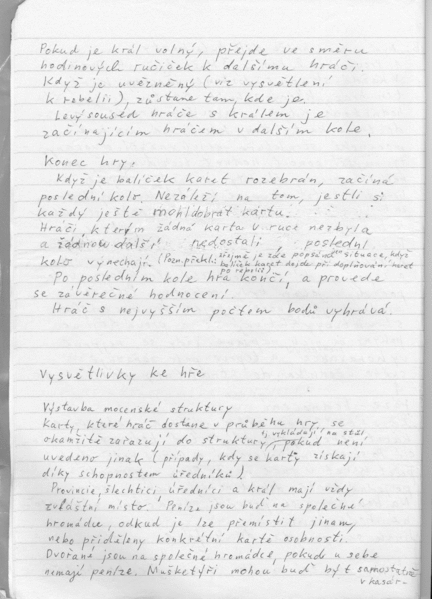 Pokud je král volný, přejde ve směru
hodinových ručiček k dalšímu hráči.
Když je uvězněný (viz vysvětlení
k rebelii), zůstane tam, kde je.
Levý soused hráče s králem je
začínajícím hráčem v dalším kole.
Konec hry:
Když je balíček karet rozebrán, začíná
poslední kolo. Nezáleží na tom, jestli si
každý ještě mohl dobrat kartu.
Hráči, kterým žádná karta v ruce nezbyla
a žádnou další nedostali, poslední
kolo vynechají. (Pozn. překl.: zde popsána situace, když
balíček karet dojde při doplňování karet
po rebelii).
Po posledním kole hra končí, a provede
se závěrečné hodnocení.
Hráč s nejvyšším počtem bodů vyhrává.
Vysvětlivky ke hře
Výstavba mocenské struktury
Karty, které hráč dostane v průběhu hry, se
okamžitě zařazují do struktury, vykládají na stůl
pokud není
uvedeno jinak (případy, kdy se karty získají
díky schopnostem úředníků).
Provincie, šlechtici, úředníci a král mají vždy
zvláštní místo. Peníze jsou buď na společné
hromádce, odkud je lze přemístit jinam,
nebo přiděleny konkrétní kartě osobnosti.
Dvořané jsou na společné hromádce, pokud u sebe
nemají peníze. Mušketýři mohou buď být samostatně
v kasár-